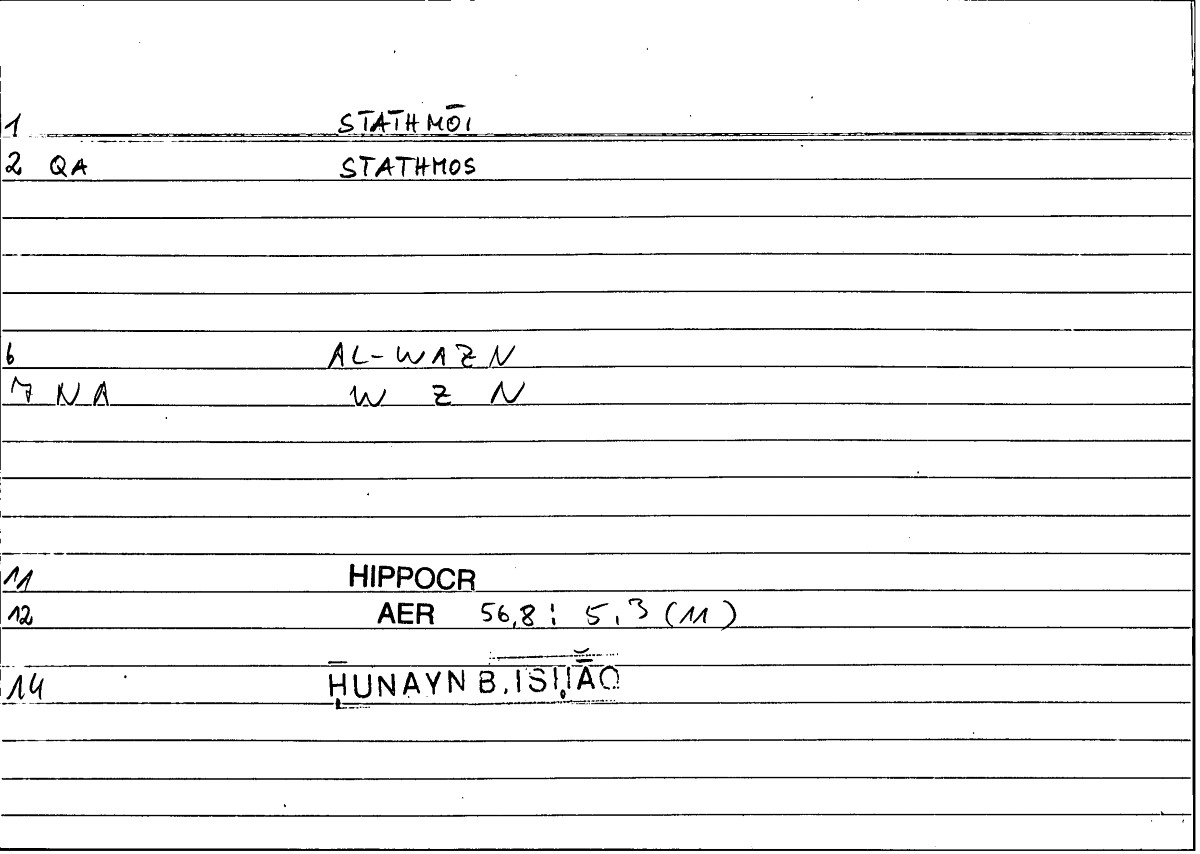 1 STATHMŌI
2 QA STATHMOS
6 AL-WAZN
7 NA W Z N
11 HIPPOCR
12 AER 56,8 ; 5,3 (11)
14 ḤUNAYN B. ISḤĀQ